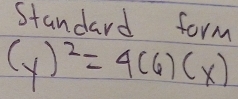 Standard form
(y)² = 4(6)(x)